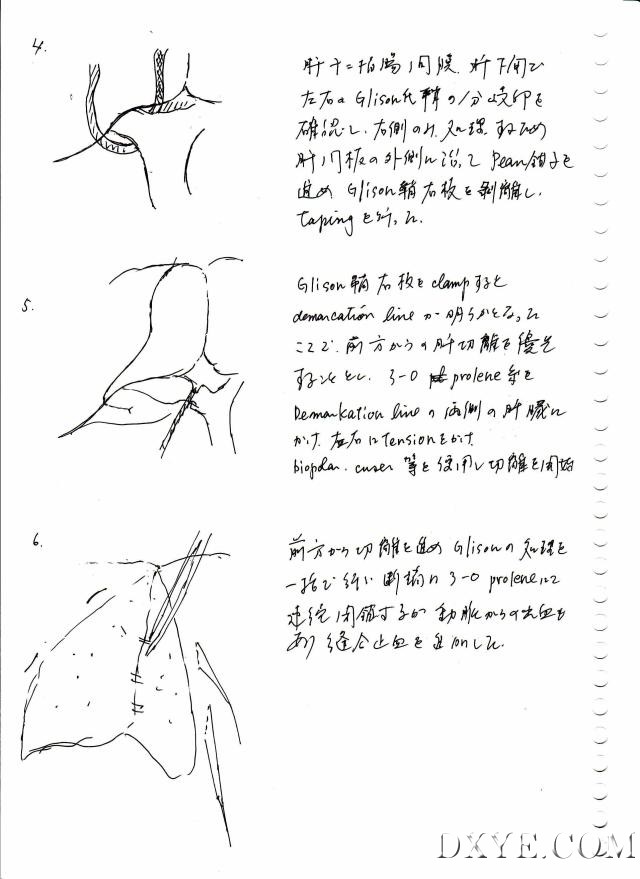 4.
肝十二指腸間膜、肝下面で
左右のGlison氏鞘の分岐部を
確認し、右側のみ処理するため
肝門板の外側に沿って Pean鉗子を
進め Glison鞘右枝を剥離し、
tapingを行った。
5.
Glison鞘右枝をclampすると
demarcation lineが明らかとなった
ここで、前方からの肝切離を優先
することとし、3-0 prolene糸を
Demarkation lineの両側の肝臓に
かけ、左右にtensionをかけ
biopolar、cuser 等を使用し切離を開始
6.
前方から切離を進め Glisonの処理を
一括で行い断端に 3-0 proleneにて
連続閉鎖するが動脈からの出血も
あり縫合止血を追加した。
DXYE.COM